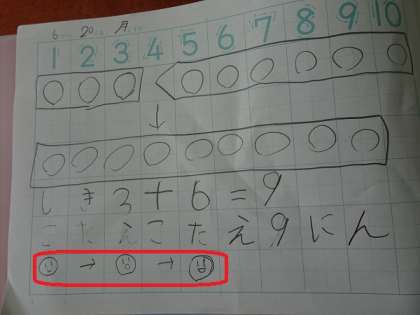 6 20 月
1 2 3 4 5 6 7 8 9 10
しき3+6=9
こたえこたえ9にん
は → か → は